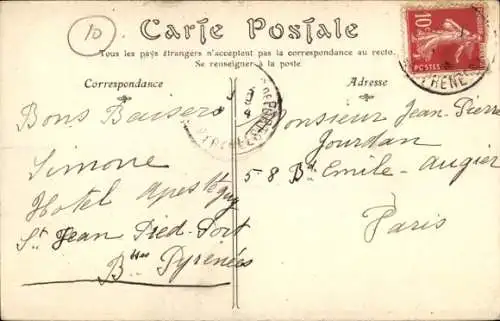 10
Carte Postale
Tous les pays étrangers n'acceptent pas la correspondance au recto.
Se renseigner à la poste
Correspondance
Adresse
10c
POSTES
Bons Baisers
Simone
Hotel Apesteguy
St Jean Pied-Port
Bses Pyrenées
Monsieur Jean-Pierre
Jourdan
58 Bd. Emile-Augier
Paris